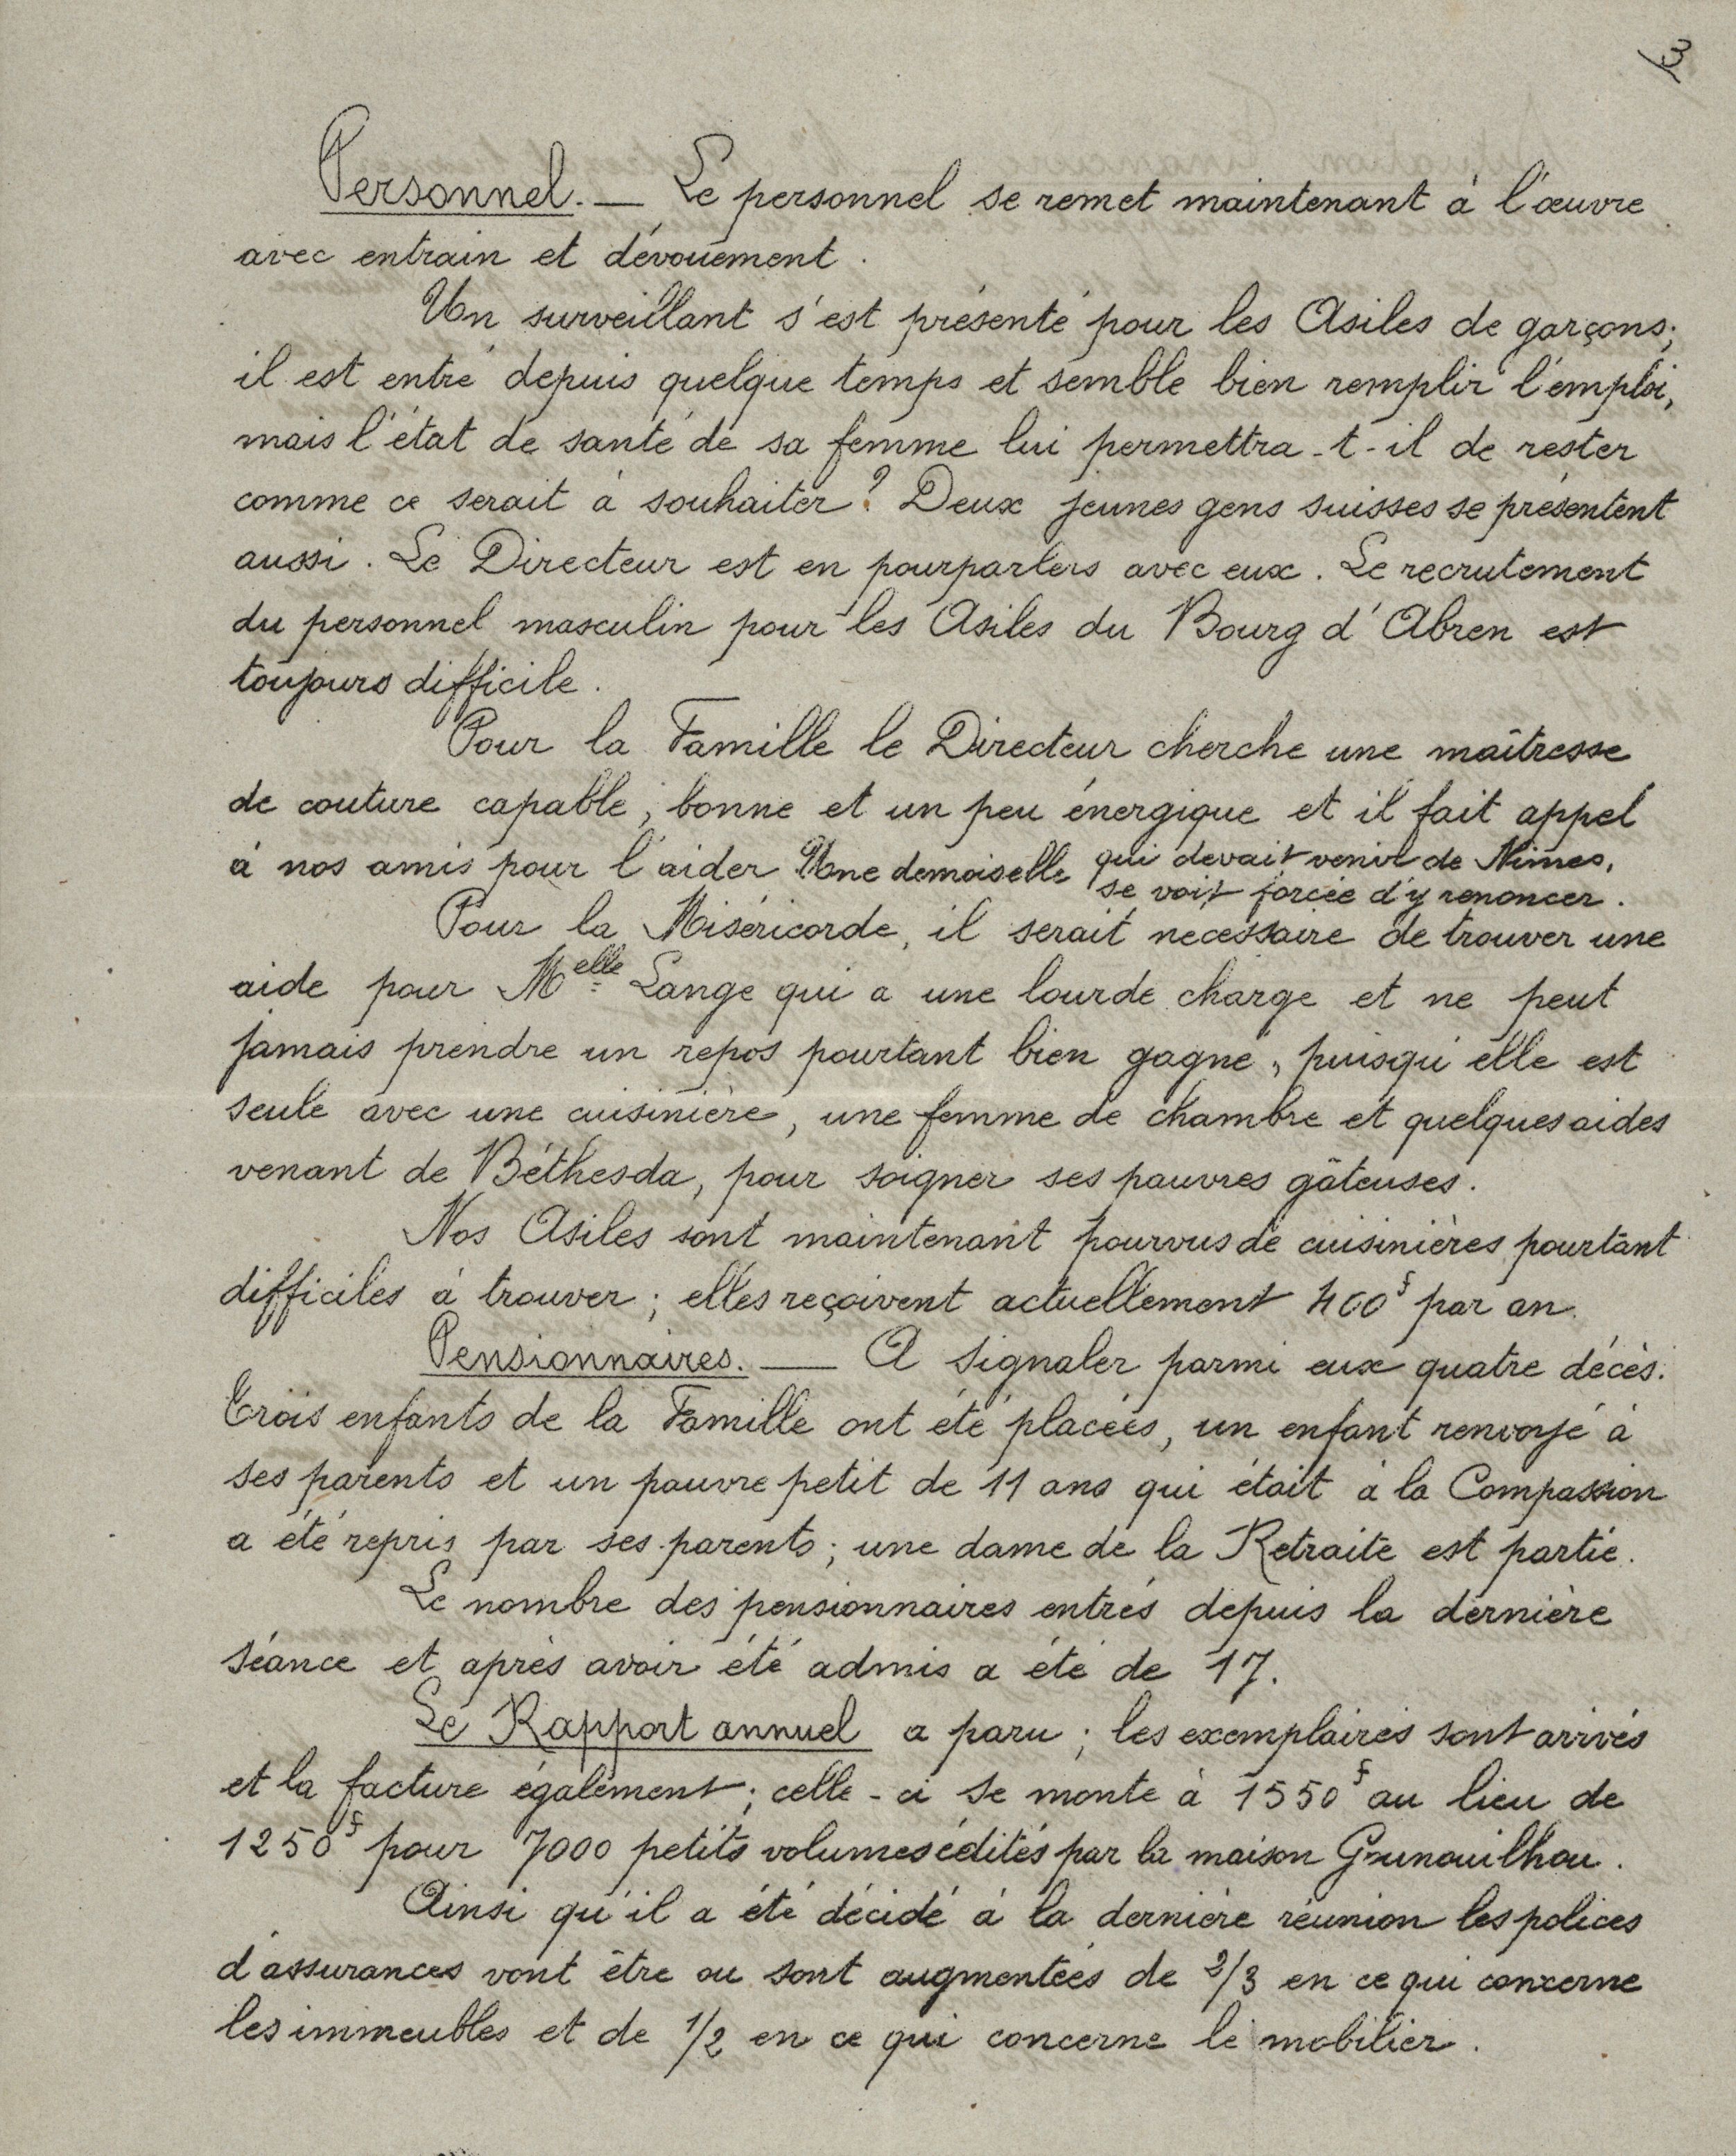 3
Personnel. — Le personnel se remet maintenant à l'œuvre
avec entrain et dévouement.
Un surveillant s'est présenté pour les Asiles de garçons;
il est entré depuis quelque temps et semble bien remplir l'emploi,
mais l'état de santé de sa femme lui permettra-t-il de rester
comme ce serait à souhaiter? Deux jeunes gens suisses se présentent
aussi. Le Directeur est en pourparlers avec eux. Le recrutement
du personnel masculin pour les Asiles du Bourg d'Abren est
toujours difficile.
Pour la Famille le Directeur cherche une maîtresse
de couture capable, bonne et un peu énergique et il fait appel
à nos amis pour l'aider Une demoiselle qui devait venir de Nimes,
se voit forcée d'y renoncer.
Pour la Miséricorde, il serait nécessaire de trouver une
aide pour Melle Lange qui a une lourde charge et ne peut
jamais prendre un repos pourtant bien gagné, puisqu'elle est
seule avec une cuisinière, une femme de chambre et quelques aides
venant de Béthesda, pour soigner ses pauvres gâteuses.
Nos Asiles sont maintenant pourvus de cuisinières pourtant
difficiles à trouver; elles reçoivent actuellement 400f par an.
Pensionnaires. — A signaler parmi eux quatre décès.
Trois enfants de la Famille ont été placées, un enfant renvoyé à
ses parents et un pauvre petit de 11 ans qui était à la Compassion
a été repris par ses parents; une dame de la Retraite est partie.
Le nombre des pensionnaires entrés depuis la dernière
séance et après avoir été admis a été de 17.
Le Rapport annuel a paru; les exemplaires sont arrivés
et la facture également; celle-ci se monte à 1550f au lieu de
1250f pour 7000 petits volumes édités par la maison Gounouilhou.
Ainsi qu'il a été décidé à la dernière réunion les polices
d'assurances vont être ou sont augmentées de 2/3 en ce qui concerne
les immeubles et de 1/2 en ce qui concerne le mobilier.